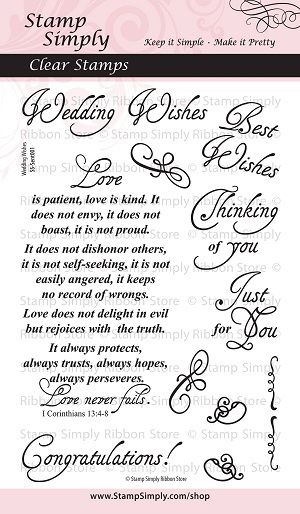 Stamp
Simply
Keep it Simple · Make it Pretty
Clear Stamps
Wedding Wishes
Best
Wishes
Wedding Wishes
SS-Sent001
Love
is patient, love is kind. It
does not envy, it does not
boast, it is not proud.
It does not dishonor others,
it is not self-seeking, it is not
easily angered, it keeps
no record of wrongs.
Love does not delight in evil
but rejoices with the truth.
It always protects,
always trusts, always hopes,
always perseveres.
Love never fails.
1 Corinthians 13:4-8
Thinking
of you
Just
for You
Congratulations!
© Stamp Simply Ribbon Store
www.StampSimply.com/shop